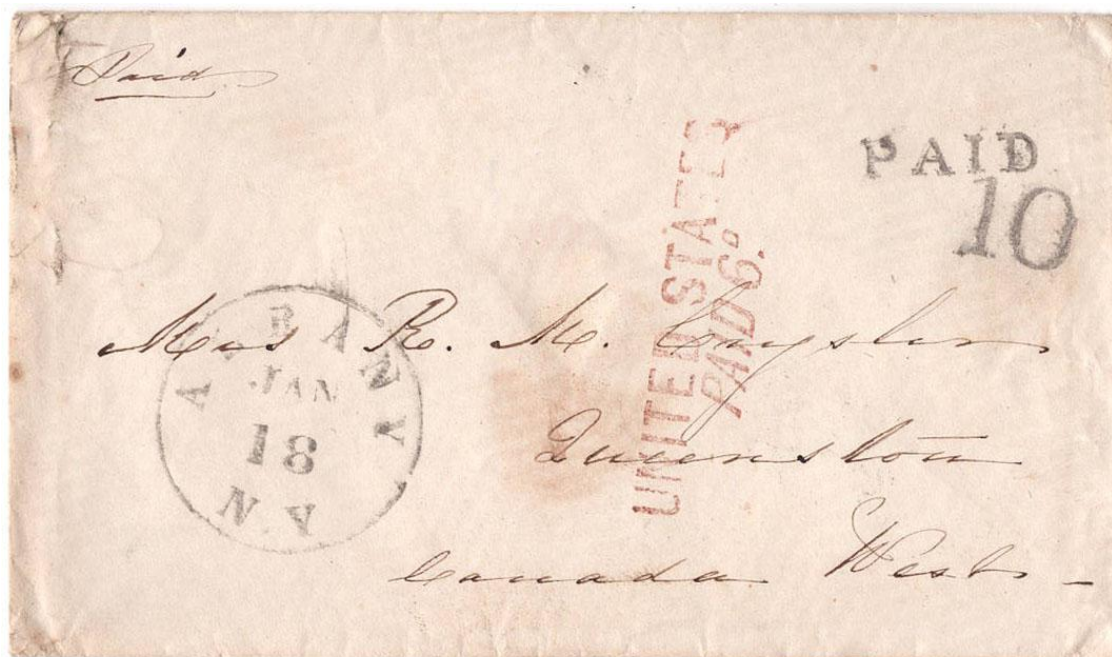 Paid
PAID
10
UNITED STATES
PAID 6ᴰ
ALBANY
JAN
18
N.Y.
R. M. Crysler
Queenston
Canada West